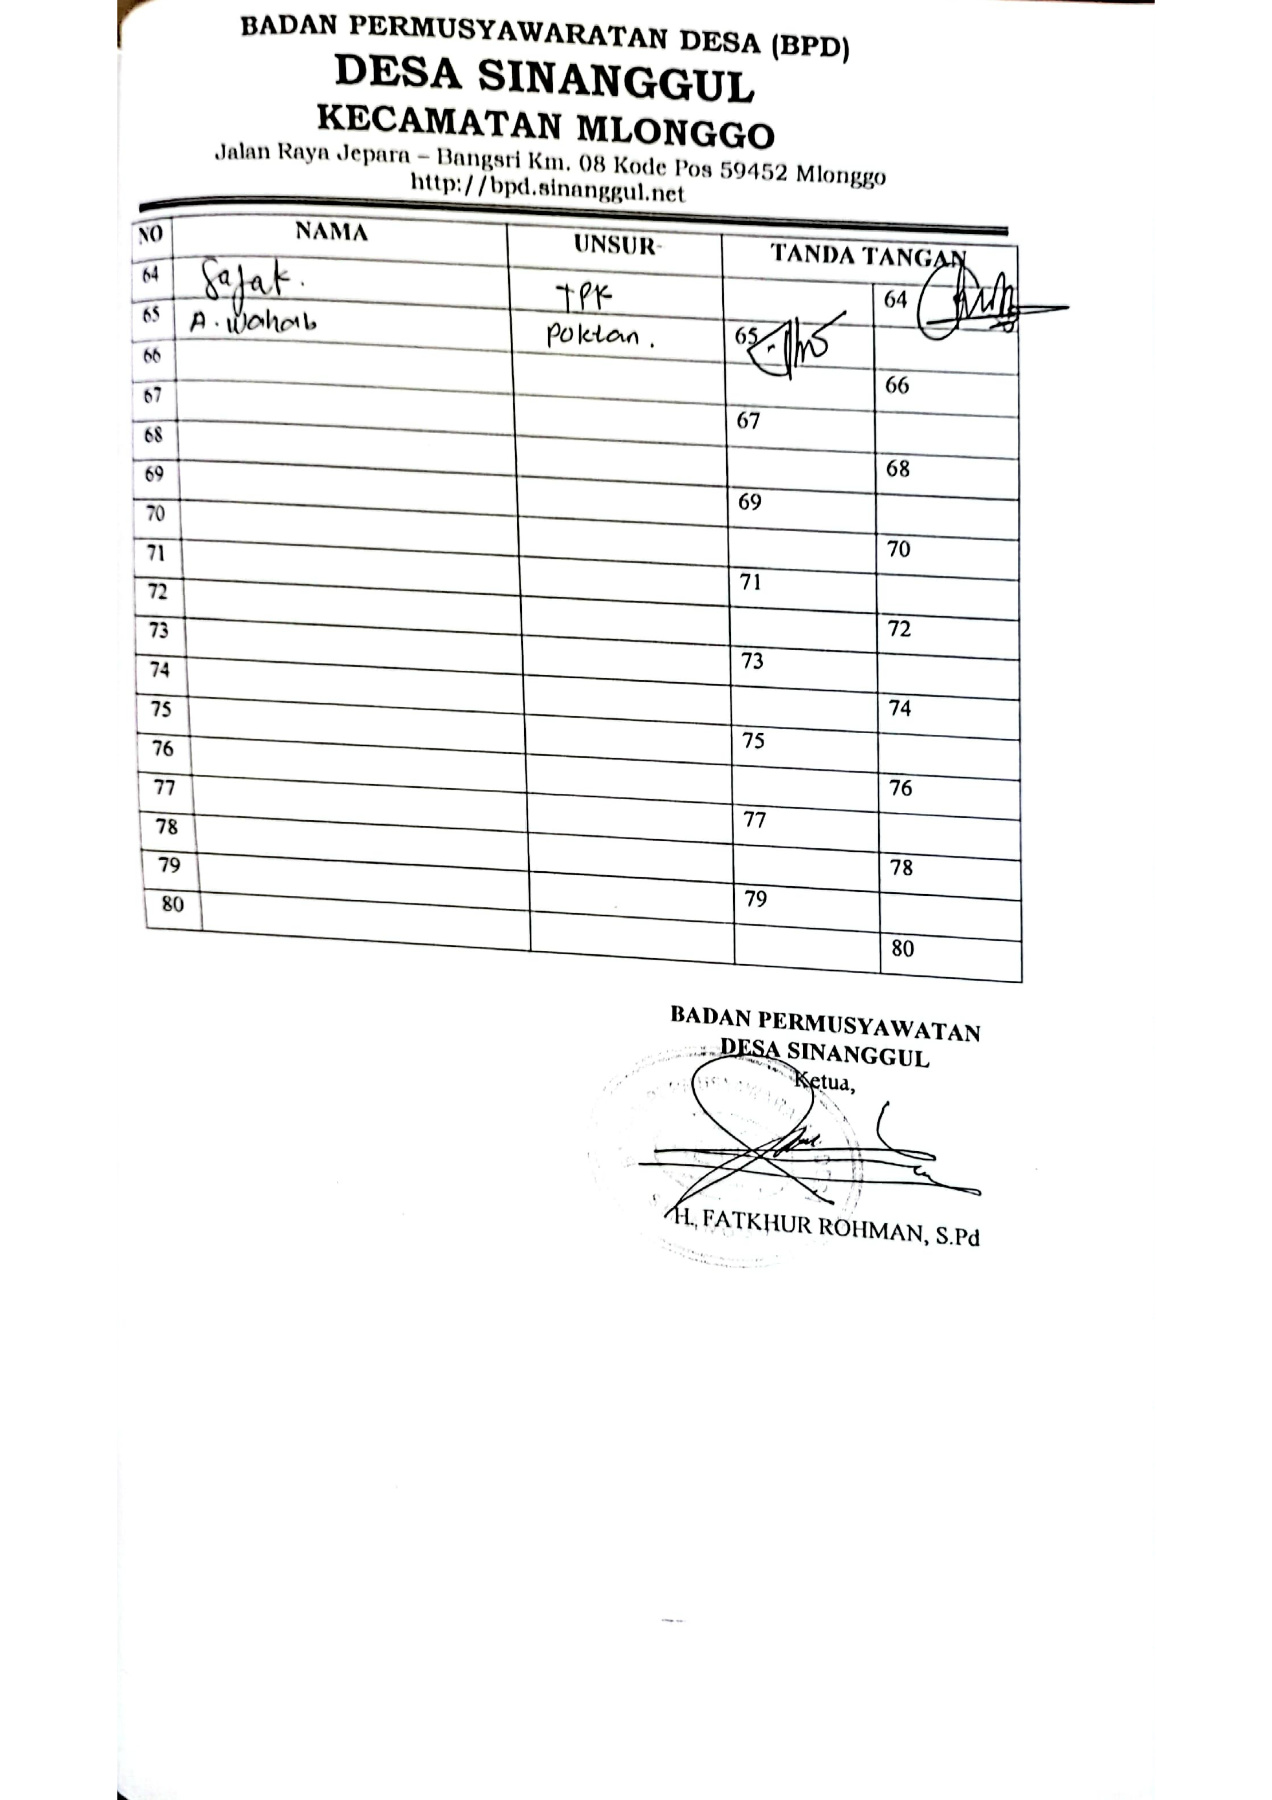 BADAN PERMUSYAWARATAN DESA (BPD)
DESA SINANGGUL
KECAMATAN MLONGGO
Jalan Raya Jepara – Bangsri Km. 08 Kode Pos 59452 Mlonggo
http://bpd.sinanggul.net
NO NAMA UNSUR TANDA TANGAN
64 Sajak. TPK 64
65 A. Wahab Poktan. 65
66 66
67 67
68 68
69 69
70 70
71 71
72 72
73 73
74 74
75 75
76 76
77 77
78 78
79 79
80 80
BADAN PERMUSYAWATAN
DESA SINANGGUL
Ketua,
H. FATKHUR ROHMAN, S.Pd